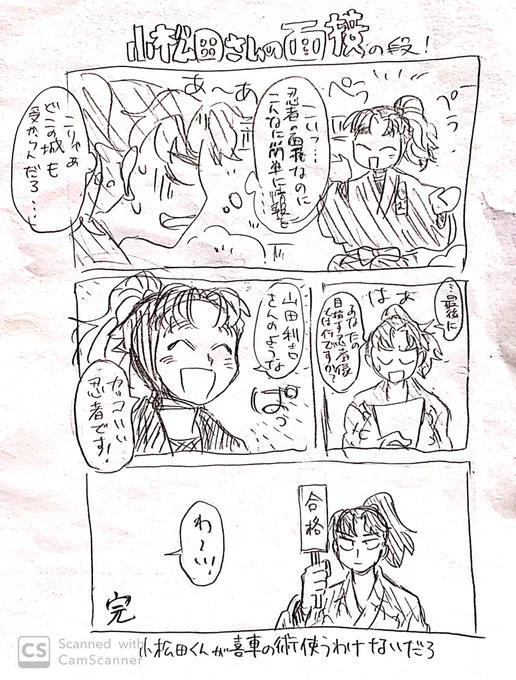 小松田さんの面接の段!
ぺら
ぺら
こいつ…
忍者の面接なのに
こんなに簡単に情報を
あ〜あ
こりゃあ
どこの城も
受からんだろ…
…最後に
はぁ
あなたの
目指す忍者像
とは何ですか?
山田利吉
さんのような
ぱっ
カッコいい
忍者です!
合格
わ〜い!
完
小松田くんが喜車の術使うわけないだろ
CS Scanned with
CamScanner